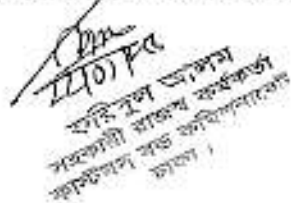 22/01/
আলম
সহকারী রাজস্ব কর্মকর্তা
কাস্টমস বন্ড কমিশনারেট
ঢাকা ।